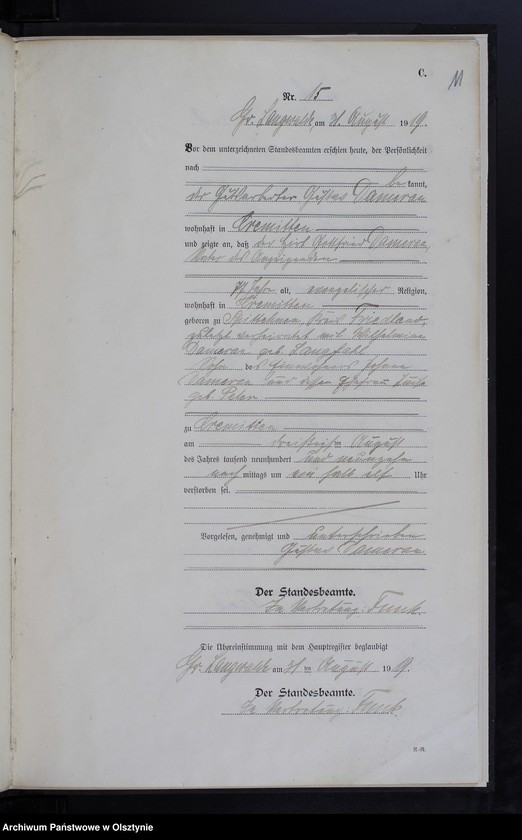 C.
11
Nr. 15
Gr. Langwalde am 31 August 1919.
Vor dem unterzeichneten Standesbeamten erschien heute, der Persönlichkeit
nach
be kannt,
der Gustav Dameran
wohnhaft in Kremitten
und zeigte an, daß der Hirt Gottfried Dameran,
Vater des Anzeigenden
77 Jahre alt, evangelischer Religion,
wohnhaft in Kremitten
geboren zu Kreis Friedland,
zuletzt verheiratet mit Wilhelmine
Dameran geb. Langfall
Sohn des Einwohners Johann
Dameran und dessen Ehefrau
geb. Peter
zu Kremitten
am dreißigsten August
des Jahres tausend neunhundert und neunzehn
nach mittags um ein halb elf Uhr
verstorben sei.
Vorgelesen, genehmigt und unterschrieben
Gustav Dameran
Der Standesbeamte.
In Vertretung: Funk.
Die Übereinstimmung mit dem Hauptregister beglaubigt
Gr. Langwalde am 31 ten August 1919.
Der Standesbeamte.
In Vertretung: Funk.
Archiwum Państwowe w Olsztynie